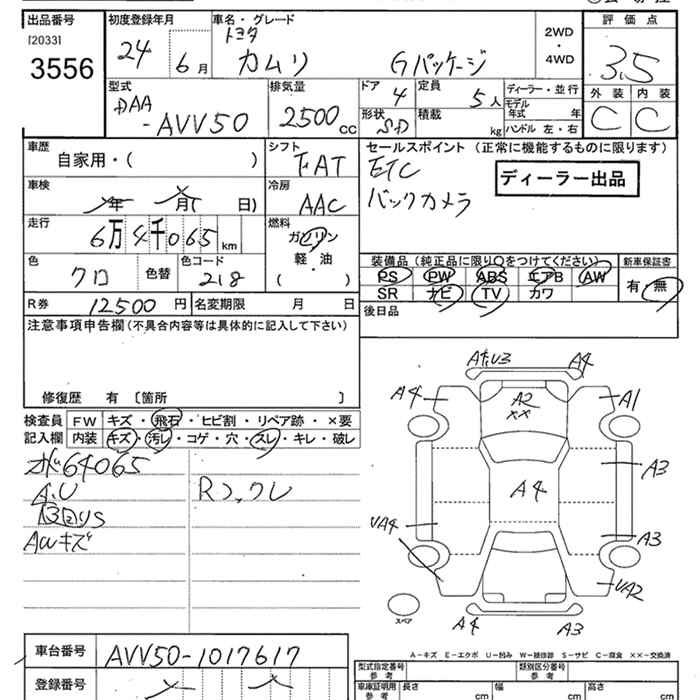 出品番号 初度登録年月 車名・グレード 評価点
[2033] トヨタ 2WD
3556 24 6月 カムリ Gパッケージ ・ 3.5
4WD
型式 排気量 ドア 定員 ディーラー・並行 外装 内装
DAA 4 5人 モデル年式 年
-AVV50 2500cc 形状 SD 積載 kg ハンドル 左・右 C C
車歴 シフト セールスポイント (正常に機能するものに限ります)
自家用・( ) FAT ETC
ディーラー出品
車検 年 月 日) 冷房 バックカメラ
AAC
走行 6万4千065km 燃料
ガソリン
色 色替 色コード 軽・油 装備品 (純正品に限り○をつけてください) 新車保証書
クロ 218 ( ) PS PW ABS エアB AW 有・無
R券 12500円 名変期限 月 日 SR ナビ TV カワ
注意事項申告欄(不具合内容等は具体的に記入して下さい) 後日品
修復歴 有 〔箇所 〕
検査員 FW キズ・飛石・ヒビ割・リペア跡・×要
記入欄 内装 キズ・汚レ・コゲ・穴・スレ・キレ・破レ
64065
A.U Rフックレ
AWキズ
A1,U3 A4
A4 A2 A1
××
A4 A3
UA4 A3
UA2
スペア
A4 A3
A-キズ E-エクボ U-凹み W-補修跡 S-サビ C-腐食 ××-交換済
車台番号 AVV50-1017617 型式指定番号 参考 類別区分番号 参考
登録番号 車庫証明用 参考 長さ cm 幅 cm 高さ cm